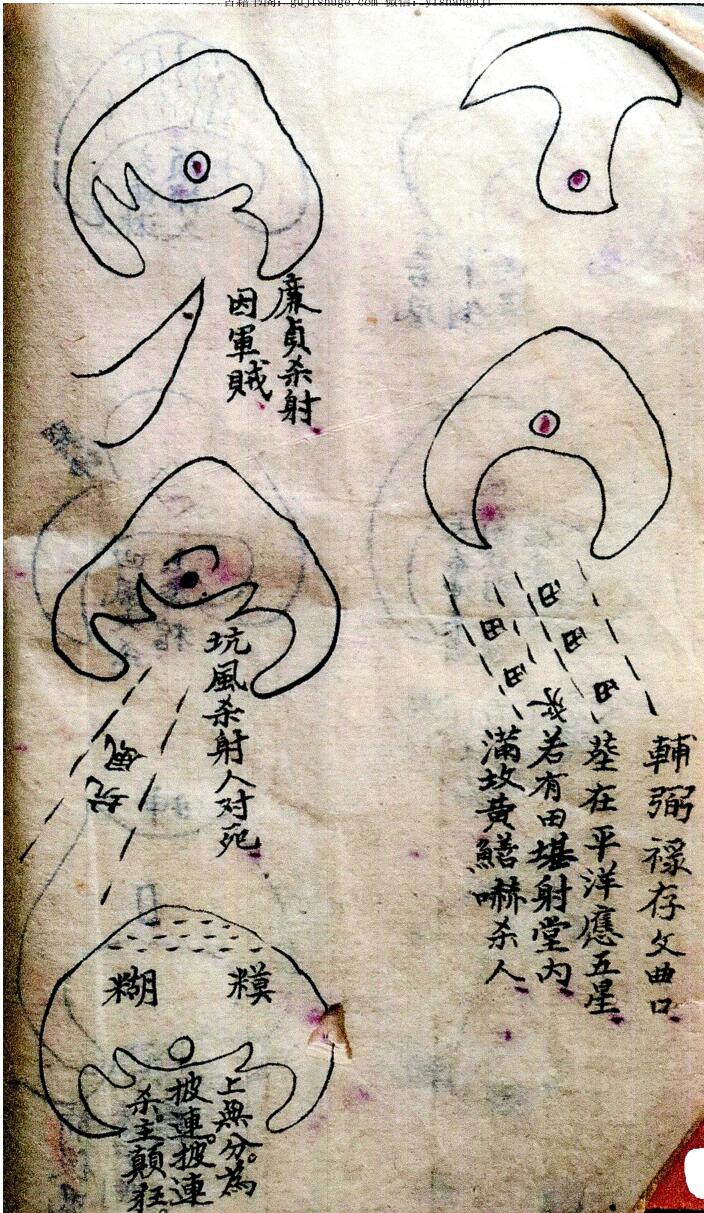 古籍书阁: gujishuge.com 微信: yishanguji
輔弼祿存文曲口
塋在平洋應五星
若有田堪射堂内
滿坟黄鱔嚇杀人
田
田
田
田
田
廉貞杀射
因軍賊
坑風杀射人对死
風
坑
糢
糊
上無分。為
披連。披連
杀。主顛狂。